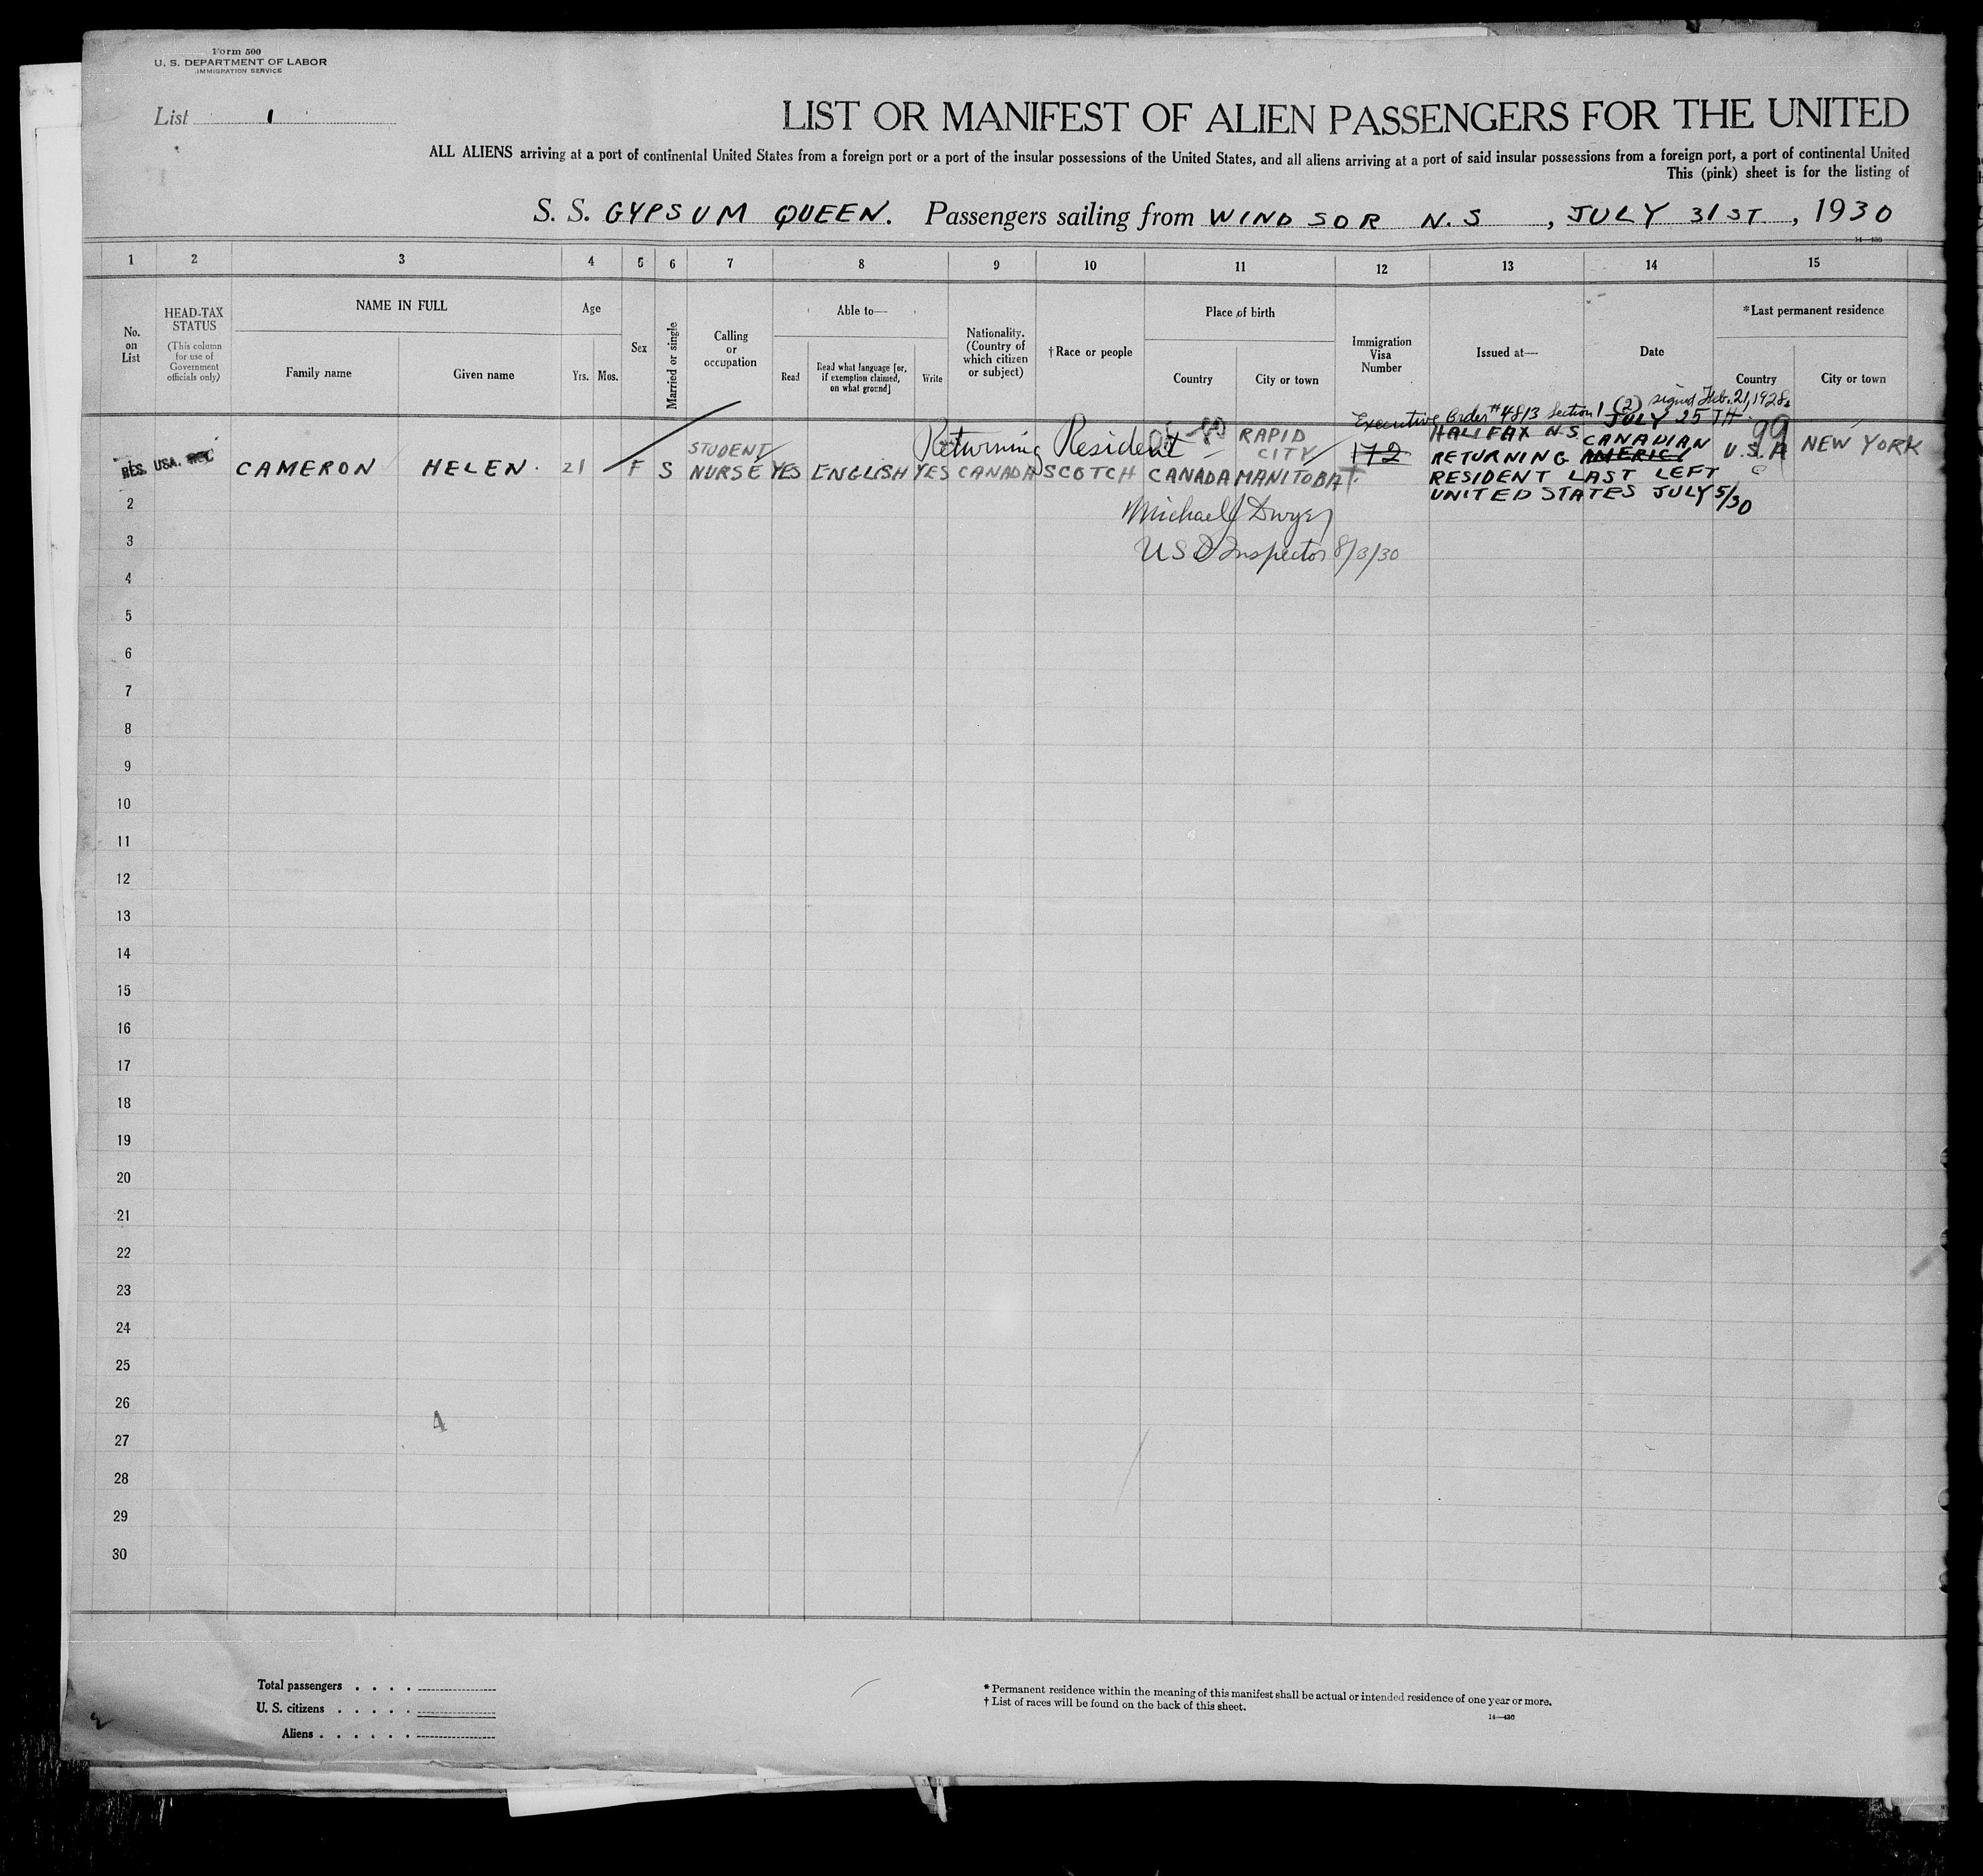 Form 500
U. S. DEPARTMENT OF LABOR
IMMIGRATION SERVICE
List 1
LIST OR MANIFEST OF ALIEN PASSENGERS FOR THE UNITED
ALL ALIENS arriving at a port of continental United States from a foreign port or a port of the insular possessions of the United States, and all aliens arriving at a port of said insular possessions from a foreign port, a port of continental United
This (pink) sheet is for the listing of
S. S. GYPSUM QUEEN. Passengers sailing from WINDSOR N.S , JULY 31ST , 1930
14—430
1 2 3 4 5 6 7 8 9 10 11 12 13 14 15
No. on List
HEAD-TAX STATUS
(This column for use of Government officials only)
NAME IN FULL
Family name
Given name
Age
Yrs. Mos.
Sex
Married or single
Calling or occupation
Able to—
Read
Read what language [or, if exemption claimed, on what ground]
Write
Nationality. (Country of which citizen or subject)
† Race or people
Place of birth
Country
City or town
Immigration Visa Number
Issued at—
Date
*Last permanent residence
Country
City or town
Executive Order #4813 Section 1 (2) signed Feb. 21, 1928.
Returning Resident
RES. USA.
CAMERON HELEN. 21 F S
STUDENT
NURSE YES ENGLISH YES CANADA SCOTCH CANADA
RAPID
CITY
MANITOBA
172
HALIFAX N.S. JULY 25TH.
RETURNING CANADIAN AMERICN
RESIDENT LAST LEFT
UNITED STATES JULY 5/30
99
U.S.A NEW YORK
Michael J Dwyer
U S Inspector 8/3/30
2
3
4
5
6
7
8
9
10
11
12
13
14
15
16
17
18
19
20
21
22
23
24
25
26
4
27
28
29
30
Total passengers . . . .
U. S. citizens . . . . .
Aliens . . . . . .
* Permanent residence within the meaning of this manifest shall be actual or intended residence of one year or more.
† List of races will be found on the back of this sheet.
14—430